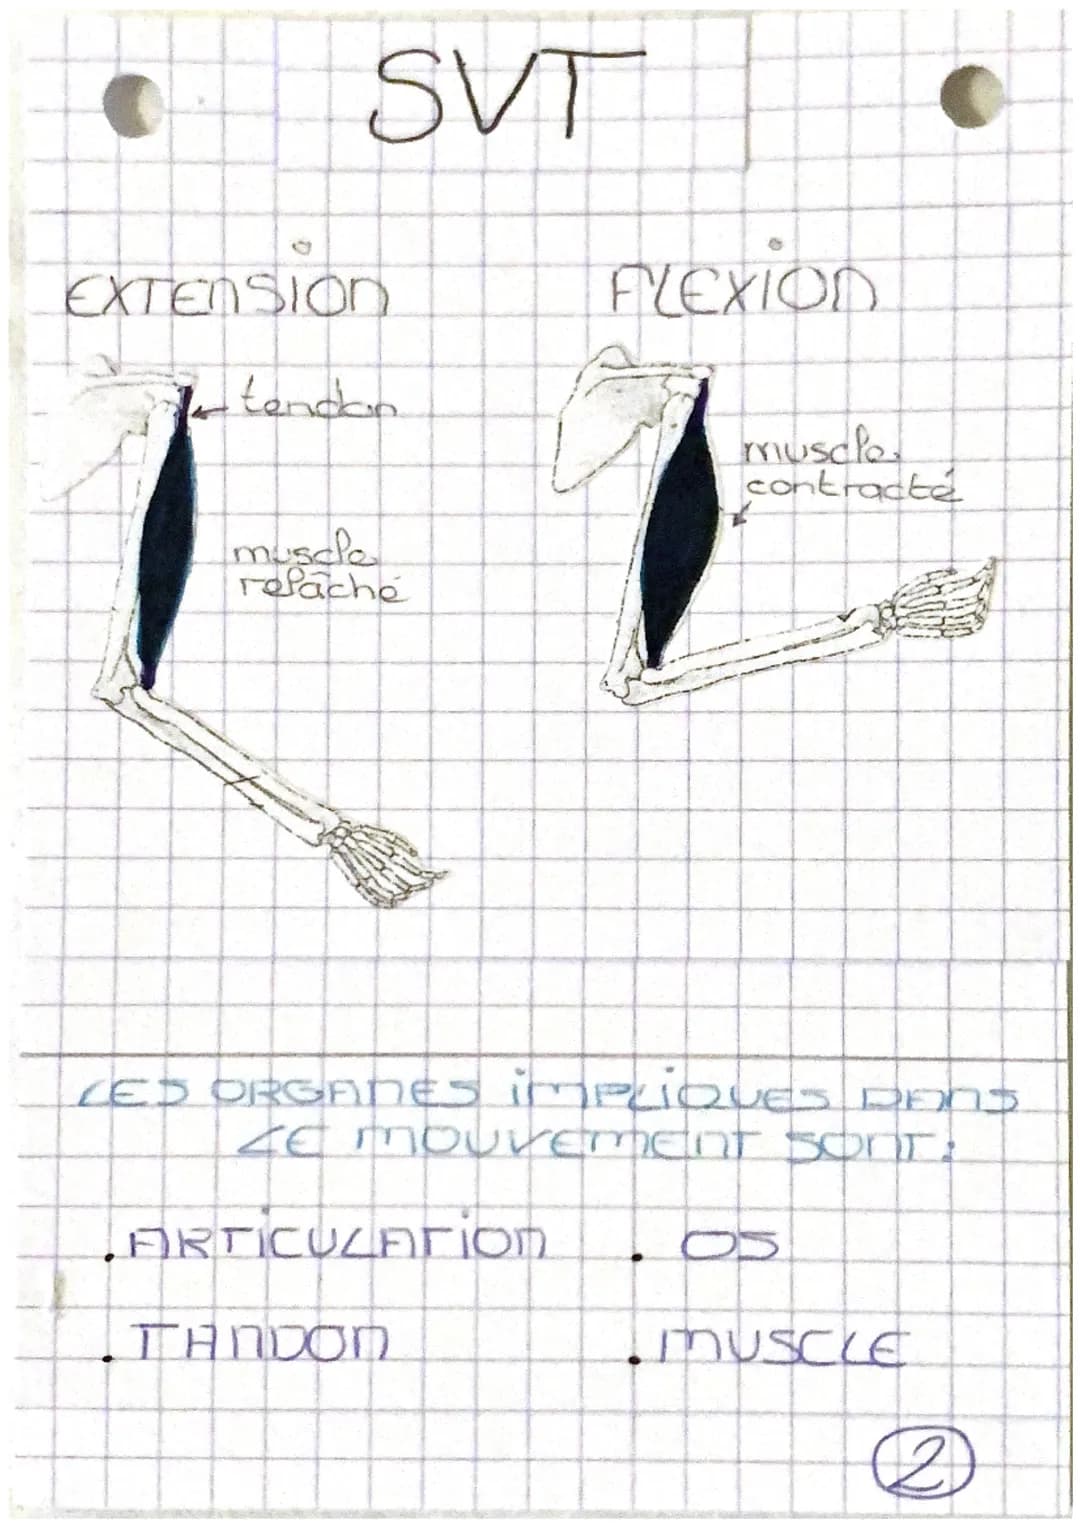 SVT
EXTENSION
FLEXION
tendon
muscle
contracté
muscle
relâché
LES ORGANES IMPLIQUES DANS
LE MOUVEMENT SONT:
. ARTICULATION
. OS
. TANDON
. MUSCLE
2